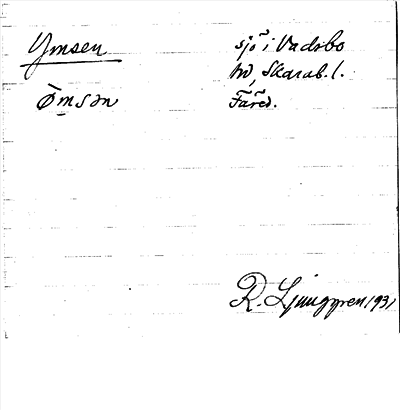 Ymsen
sjö i Vadsbo
hd, Skarab. l.
ò̤msən
Fåred.
R. Ljunggren 1931